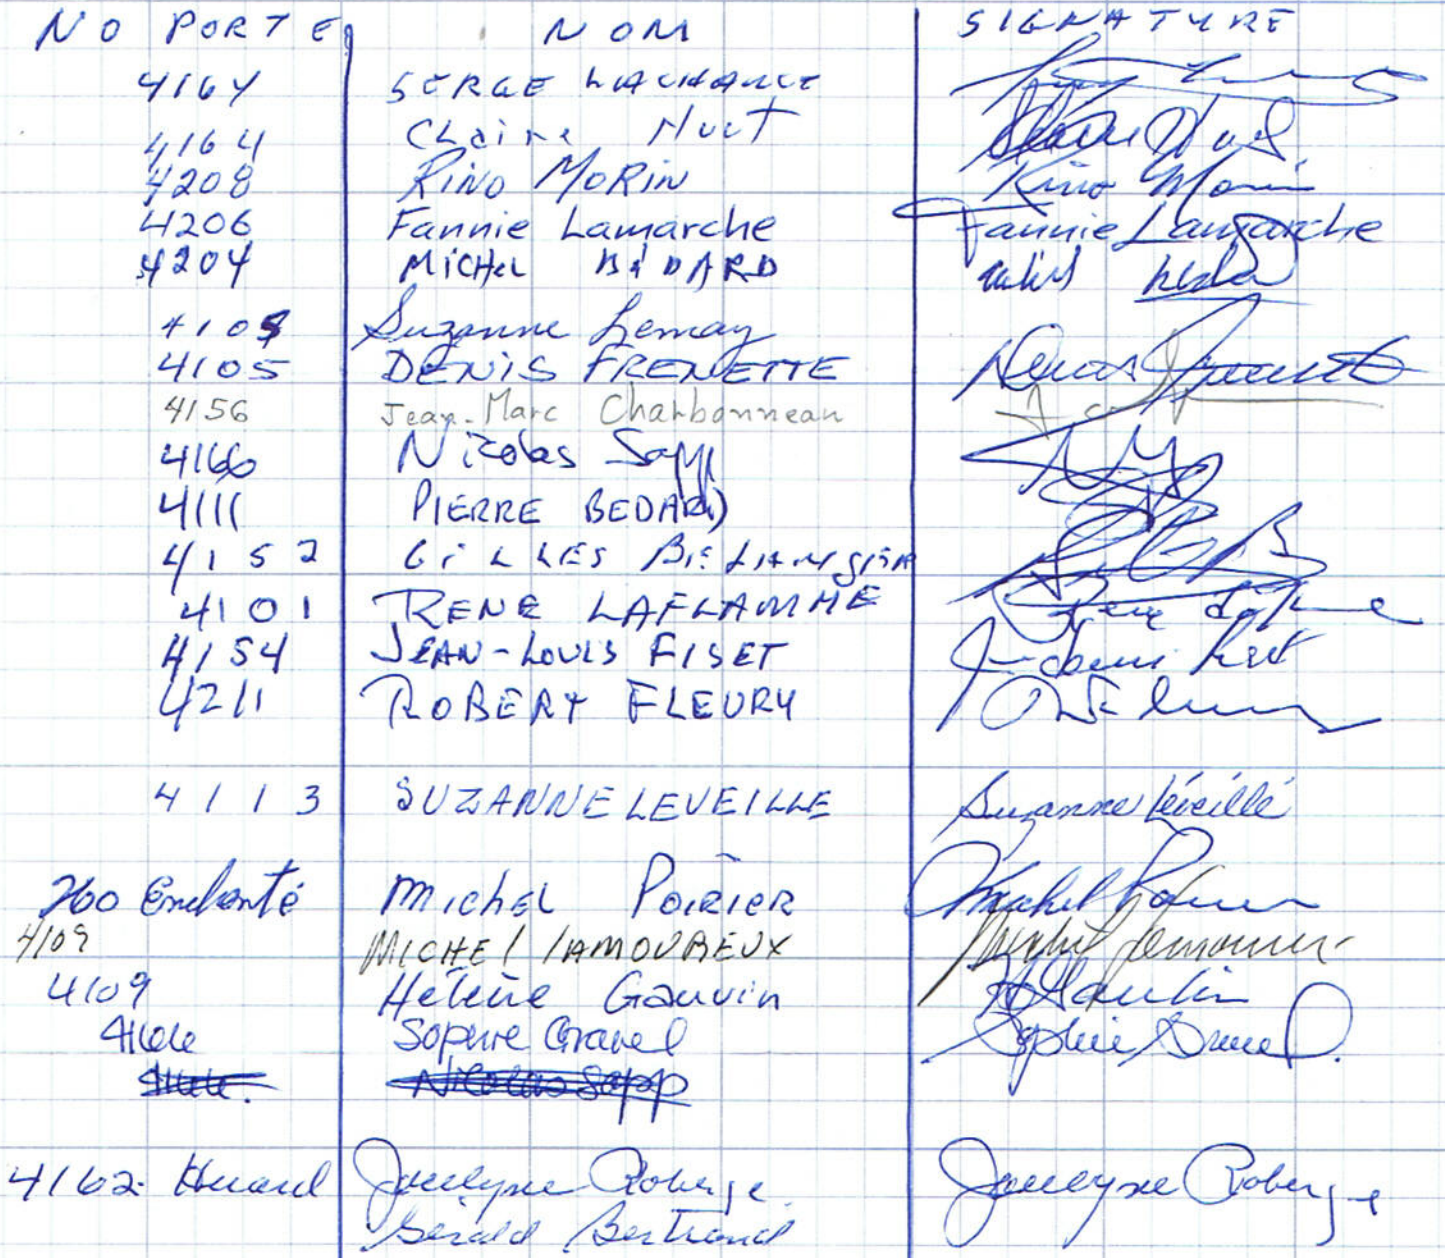 NO PORTE NOM SIGNATURE
4164 SERGE LACHANCE
4164 Claire Huot
4208 RINO MORIN Rino Morin
4206 Fannie Lamarche Fannie Lamarche
4204 MICHEL BÉDARD
4105 Suzanne Lemay
4105 DENIS FRENETTE Denis Frenette
4156 Jean-Marc Charbonneau
4166 Nicolas Sapp
4111 PIERRE BEDARD
4152 GILLES BELANGER
4101 RENE LAFLAMME
4154 JEAN-LOUIS FISET
4211 ROBERT FLEURY
4113 SUZANNE LEVEILLE Suzanne Léveillé
760 Enchanté Michel Poirier Michel Poirier
4109 MICHEL LAMOUREUX Michel Lamoureux
4109 Hélène Gauvin H Gauvin
4166 Sophie Gravel Sophie Gravel
4166. Nicolas Sapp
4162 Huard Jocelyne Roberge Jocelyne Roberge
Gérald Bertrand